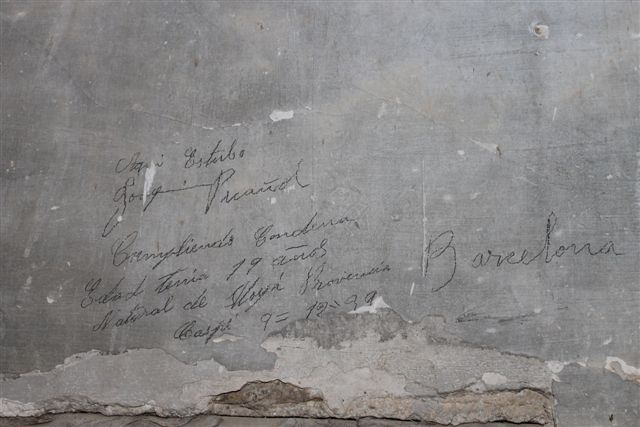 Aqui Estubo
Joaquin Picañol
Cumpliendo Condena
Edad tenia 19 años
Natural de Moyá Provencia
Barcelona
9= 12=39